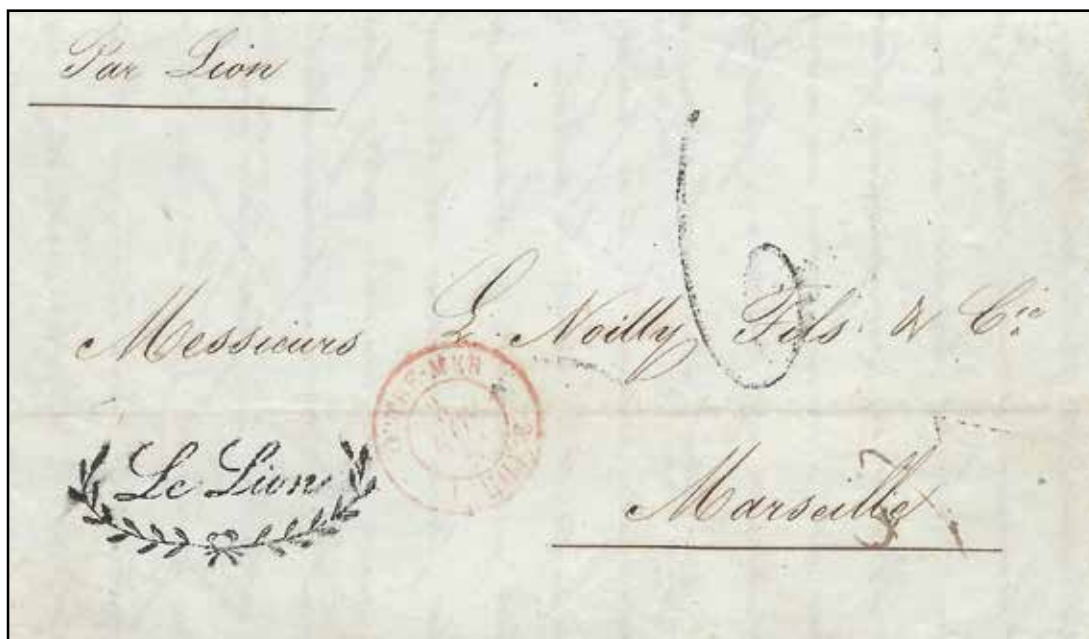 Par Lion
6
Messieurs L. Noilly Fils & Cie
OUTRE-MER
Le Lion
Marseille